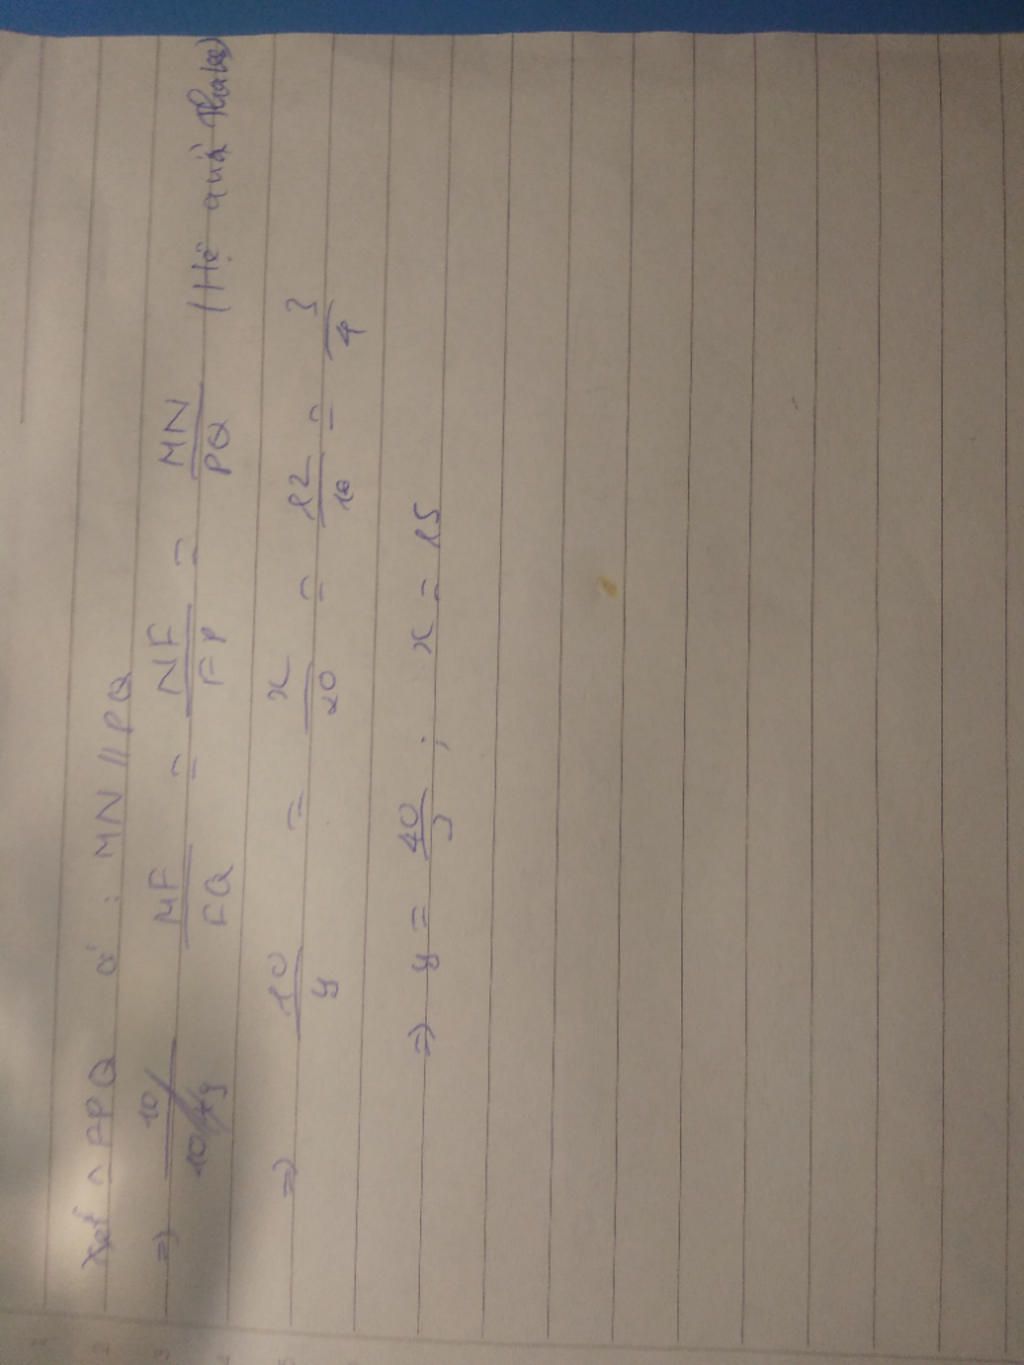 Xét △ FPQ có : MN // PQ
=> 10/10+y MF/FQ = NF/FP = MN/PQ (Hệ quả Thales)
=> 10/y = x/20 = 12/16 = 3/4
=> y = 40/3 ; x = 15